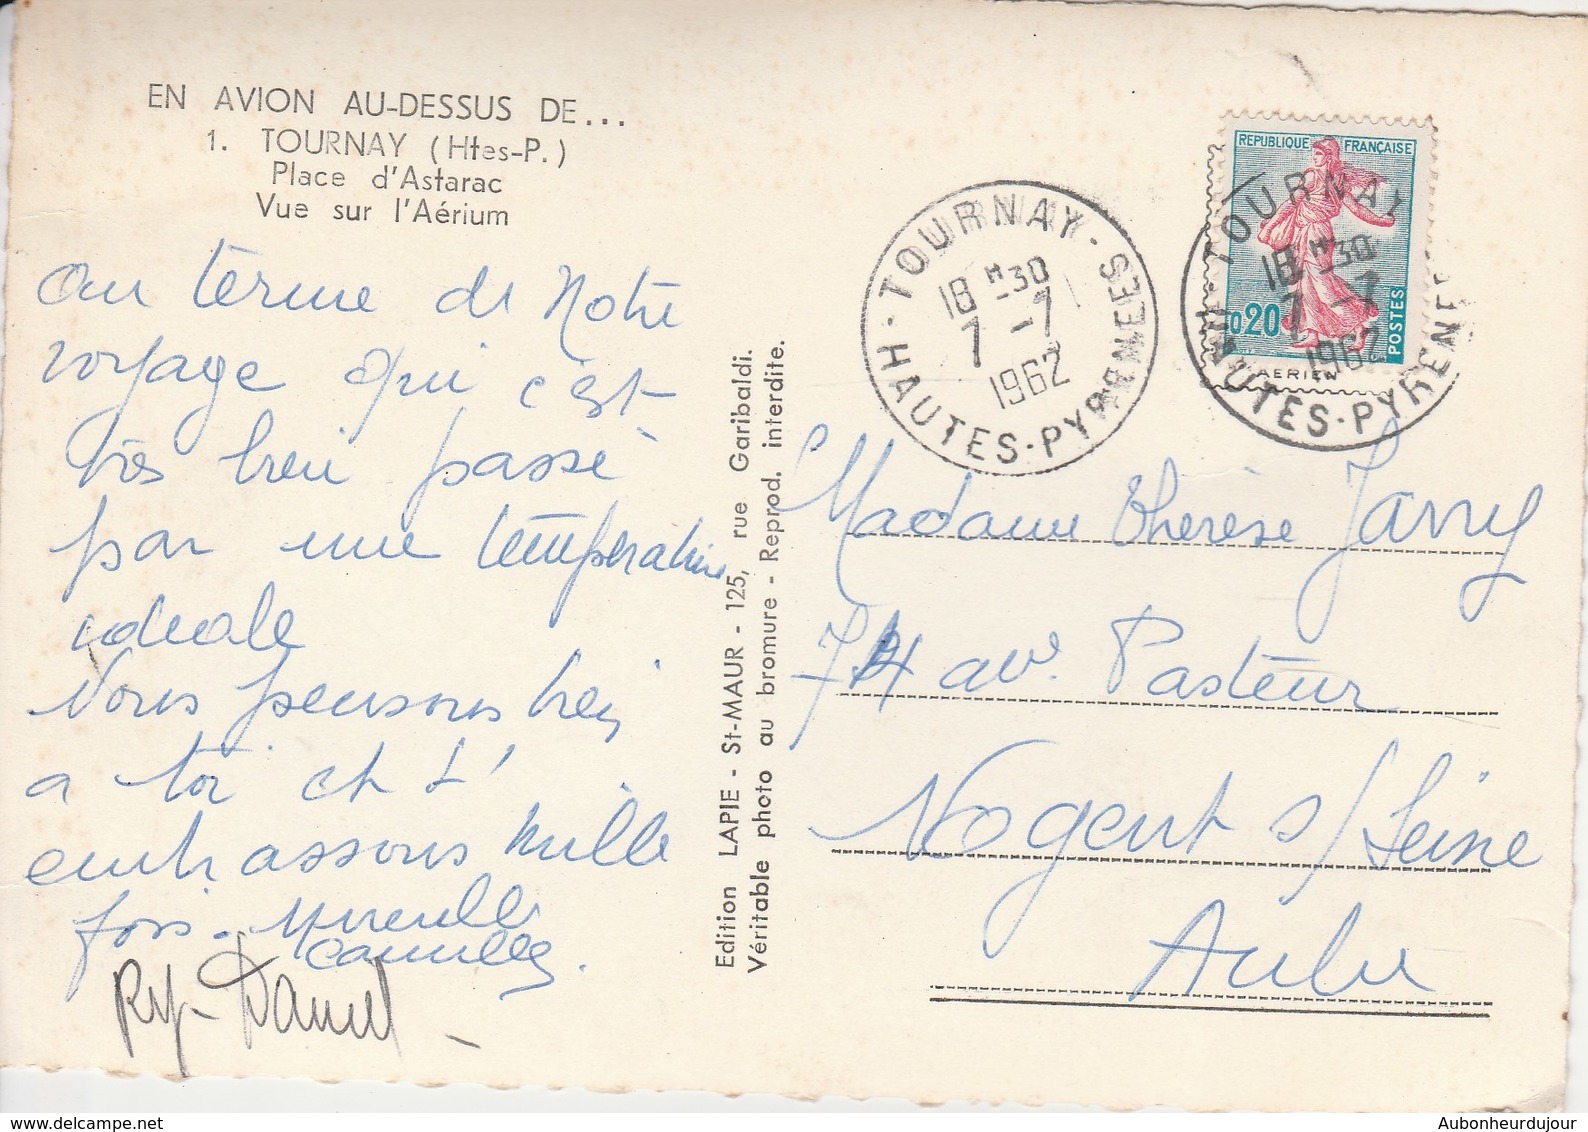 EN AVION AU-DESSUS DE...
1. TOURNAY (Htes-P.)
Place d'Astarac
Vue sur l'Aérium
au terme de Notre
voyage qui c'est
très bien passé
par une température
idéale
Nous pensons bien
a toi et t'
embrassons mille
fois. Mireille
Camille.
Daniel
Edition LAPIE - St-MAUR - 125, rue Garibaldi.
Véritable photo au bromure - Reprod. interdite.
TOURNAY
18 H 30
7 - 7
1962
HAUTES-PYRENEES
REPUBLIQUE FRANÇAISE
0,20
POSTES
TOURNAY
18 H 30
7 - 7
1962
HAUTES-PYRENEES
AERIEN
Madame Thérèse Jarry
74 ave Pasteur
Nogent s/ Seine
Aube
Aubonheurdujour